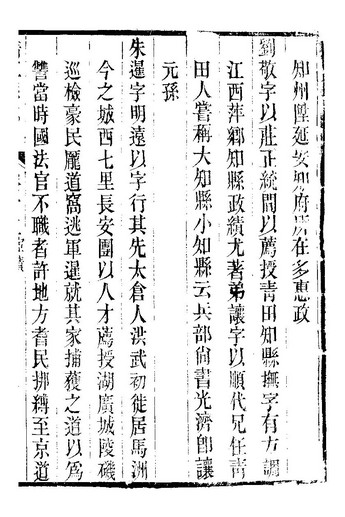 知州陞延安知府所在多惠政
劉敬字以莊正統間以薦授青田知縣撫字有方調
江西萍鄉知縣政績尤著弟讓字以順代兄任青
田人嘗稱大知縣小知縣云兵部尙書光濟卽讓
元孫
朱暹字明遠以字行其先太倉人洪武初徙居馬洲
今之城西七里長安團以人才薦授湖廣城陵磯
巡檢豪民龎道窩逃軍暹就其家捕獲之道以爲
讐當時國法官不職者許地方耆民挷縛至京道